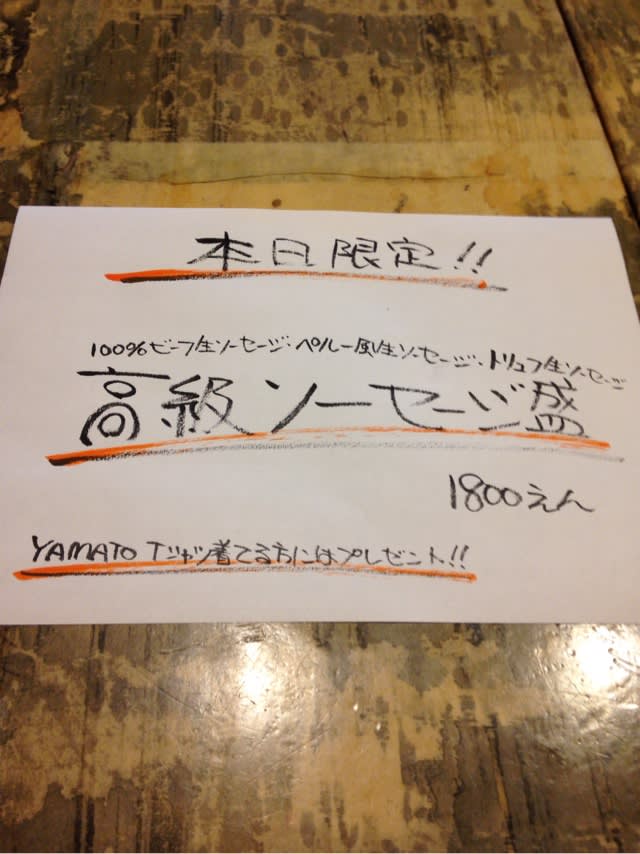 本日限定!!
100%ビーフ生ソーセージ・ペルー風生ソーセージ・トリュフ生ソーセージ
高級ソーセージ盛
1800えん
YAMATO Tシャツ着てる方にはプレゼント!!